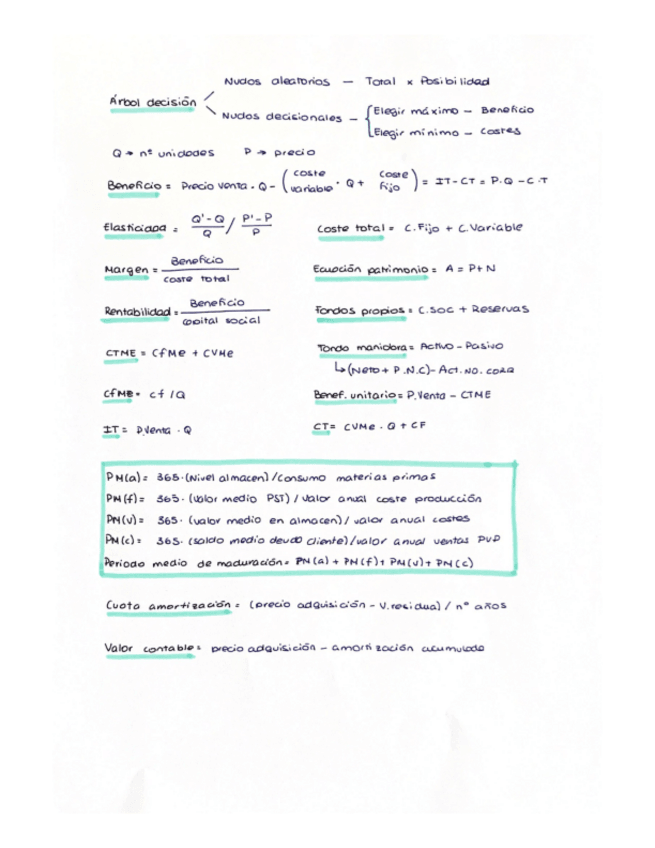 Nudos aleatorios — Total x Posibilidad
Árbol decisión
Nudos decisionales — { Elegir máximo — Beneficio
Elegir mínimo — Costes
Q → nº unidades P → precio
Beneficio = Precio venta · Q - ( coste variable · Q + coste fijo ) = IT - CT = P·Q - C·T
Elasticidad = Q'-Q / Q / P'-P / P
Coste total = C.Fijo + C.Variable
Margen = Beneficio / coste total
Ecuación patrimonio = A = P+N
Rentabilidad = Beneficio / capital social
Fondos propios = C.soc + Reservas
CTME = CfMe + CVMe
Fondo maniobra = Activo - Pasivo
↳ (Neto + P.N.C) - Act.NO.corr
CfME = cf / Q
Benef. unitario = P.Venta - CTME
IT = P.Venta · Q
CT = CVMe · Q + CF
PM(a) = 365·(Nivel almacen) / Consumo materias primas
PM(f) = 365· (Valor medio PST) / Valor anual coste producción
PM(v) = 365· (valor medio en almacen) / valor anual costes
PM(c) = 365· (saldo medio deuda cliente) / valor anual ventas PVP
Periodo medio de maduración = PM(a) + PM(f) + PM(v) + PM(c)
Cuota amortización = (precio adquisición - V.residual) / nº años
Valor contable = precio adquisición - amortización acumulada